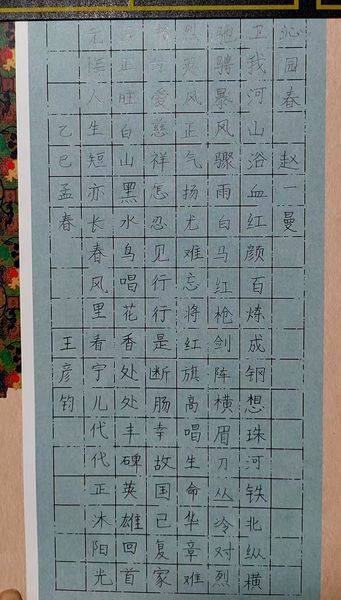 沁园春 赵一曼
卫我河山浴血红颜百炼成钢想珠河铁北纵横
驰骋暴风骤雨白马红枪剑阵横眉刀丛冷对烈
烈英风正气扬尤难忘将红旗高唱生命华章难
母爱慈祥怎忍见行行是断肠幸故国已复家
正旺白山黑水鸟唱花香处处丰碑英雄回首
无悔人生短亦长春风里看宁儿代代正沐阳光
乙巳孟春 王彦钧